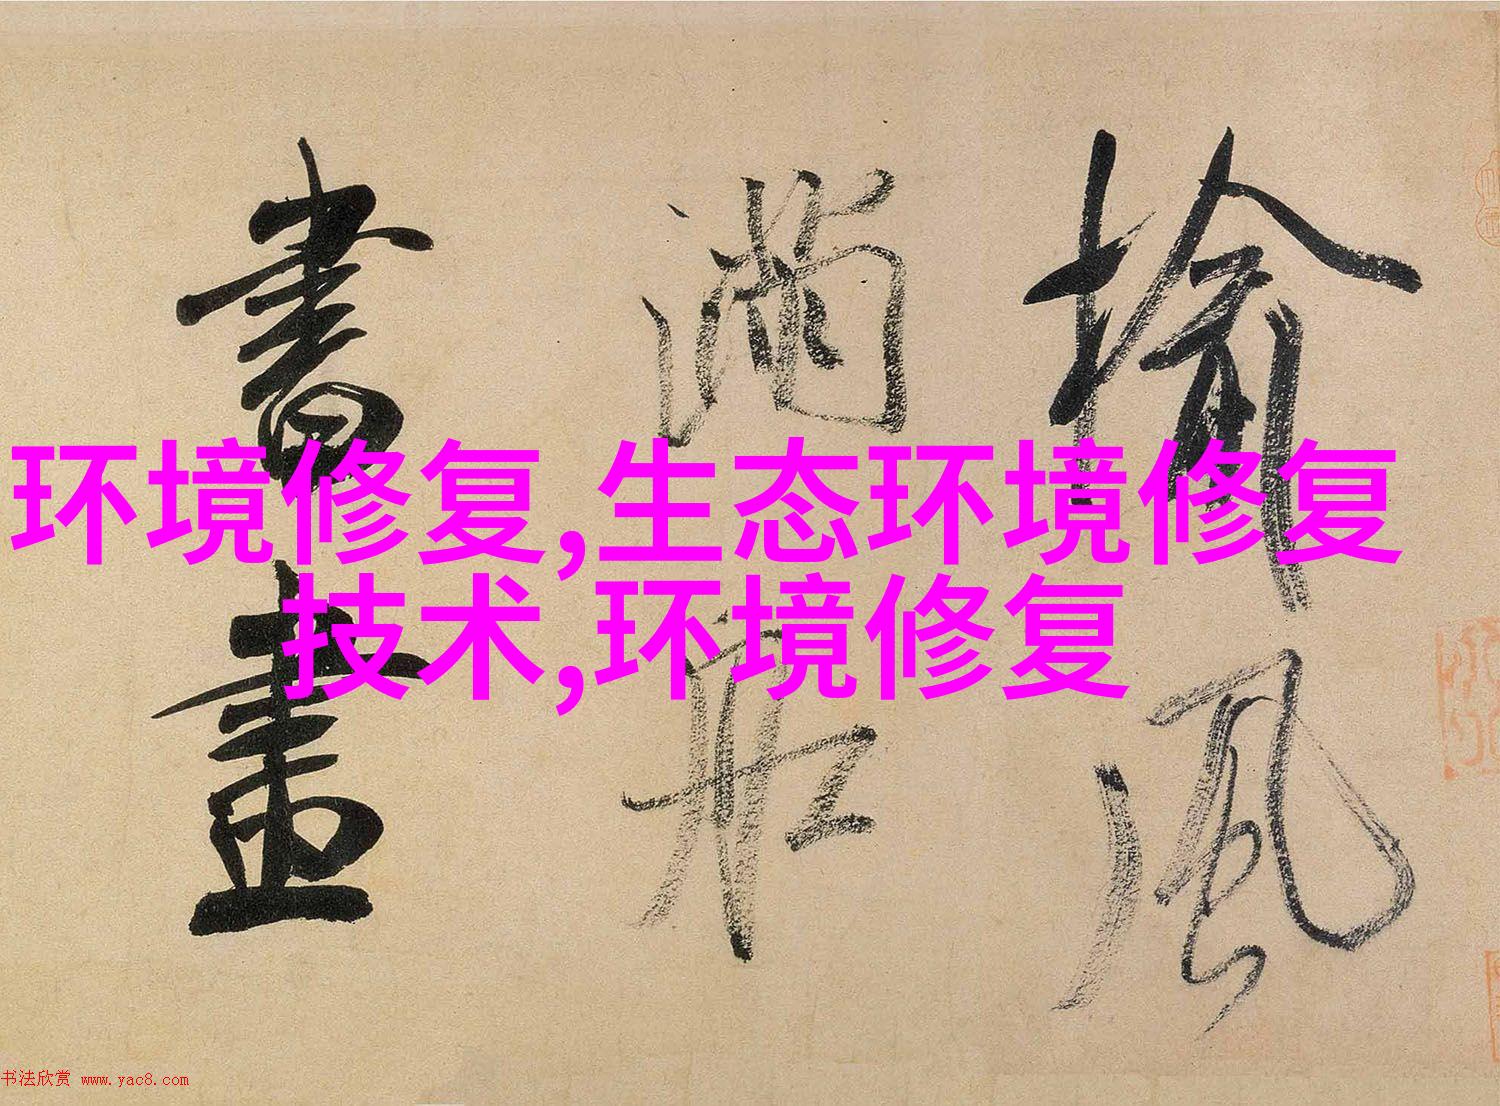 环境修复,生态环境修复
技术,环境修复
榆風
滿船
書畫
书法欣赏 www.yac8.com